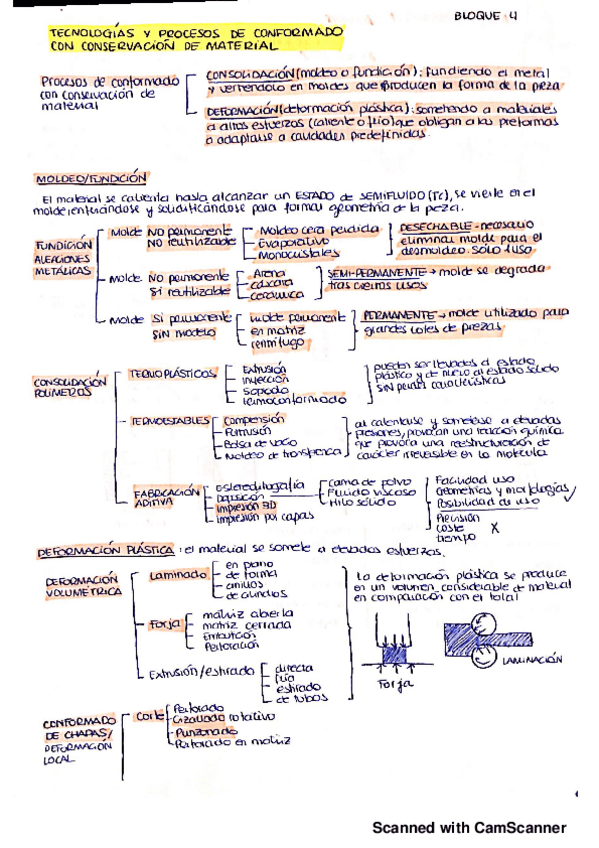 BLOQUE 4
TECNOLOGÍAS Y PROCESOS DE CONFORMADO
CON CONSERVACIÓN DE MATERIAL
Procesos de conformado
con conservación de
material
CONSOLIDACIÓN (moldeo o fundición): fundiendo el metal
y vertiendolo en moldes que producen la forma de la pieza
DEFORMACIÓN (deformación plástica): sometiendo a materiales
a altos esfuerzos (caliente o frío) que obligan a las preformas
a adaptarse a cavidades predefinidas.
MOLDEO/FUNDICIÓN
El material se calienta hasta alcanzar un ESTADO de SEMIFLUIDO (Tc), se vierte en el
molde enfriandose y solidificándose para formar geometría de la pieza.
FUNDICIÓN
ALEACIONES
METÁLICAS
Molde NO permanente
NO reutilizable
Moldeo cera perdida
Evaporativo
Monocristales
DESECHABLE - necesario
eliminar molde para el
desmoldeo. Solo 1 uso
Molde NO permanente
SI reutilizable
Arena
cáscara
cerámica
SEMI-PERMANENTE → molde se degrada
tras ciertos usos
Molde SI permanente
SIN modelo
molde permanente
en matriz
centrifugo
PERMANENTE → molde utilizado para
grandes lotes de piezas
CONSOLIDACIÓN
POLIMEROS
TERMOPLÁSTICOS
Extrusión
inyección
soplado
termoconformado
pueden ser llevados al estado
plástico y de nuevo al estado sólido
SIN perder características
TERMOESTABLES
Compensión
Pultrusión
Bolsa de vacío
Moldeo de transferencia
al calentarse y someterse a elevadas
presiones, provocan una reacción química
que provoca una reestructuración de
carácter irreversible en la molécula
FABRICACIÓN
ADITIVA
estereolitografía
impresión 3D
impresión por capas
Cama de polvo
Fluido viscoso
Hilo sólido
Facilidad uso
Geometrías y morfologías
Posibilidad de uso
✓
Precisión
coste
tiempo
X
DEFORMACIÓN PLÁSTICA: el material se somete a elevados esfuerzos.
DEFORMACIÓN
VOLUMÉTRICA
Laminado
en plano
de forma
anillos
de cilindros
Forja
matriz abierta
matriz cerrada
Embutición
Perforación
Extrusión/estirado
directa
fría
estirado
de tubos
la deformación plástica se produce
en un volumen considerable de material
en comparación con el total
Forja
LAMINACIÓN
CONFORMADO
DE CHAPAS/
DEFORMACIÓN
LOCAL
Corte
Perforado
Cizallado rotativo
Punzonado
Perforado en matriz
Scanned with CamScanner